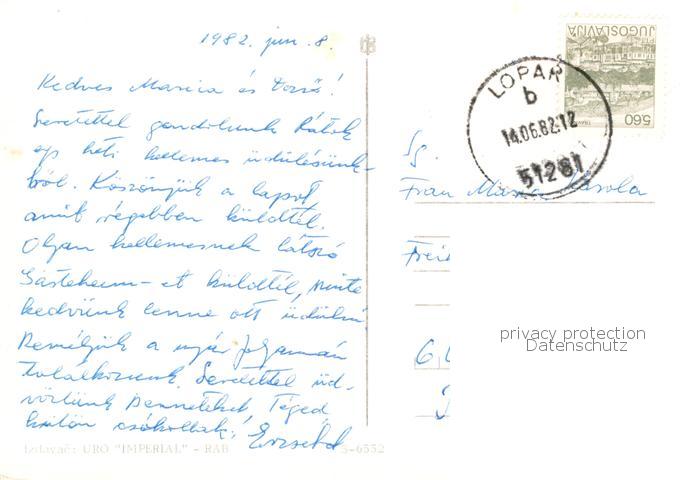 1982. jun. 8.
Kedves Marica és Dezső!
Szeretettel gondolunk Rátok
egy heti kellemes üdülésünk-
ből. Köszönjük a lapot
amit régebben küldtél.
Olyan kellemesnek látszó
Gästeheim-et küldtél, szinte
kedvünk lenne ott üdülni.
Reméljük a nyár folyamán
találkozunk. Szeretettel üd-
vözlünk Benneteket, Téged
külön csókollak! Erzsébet
Izdavač: URO "IMPERIAL" - RAB S-6552
JUGOSLAVIJA
5,60
LOPAR
b
14.06.82.12
51281
Sg.
Frau Maria
privacy protection
Datenschutz